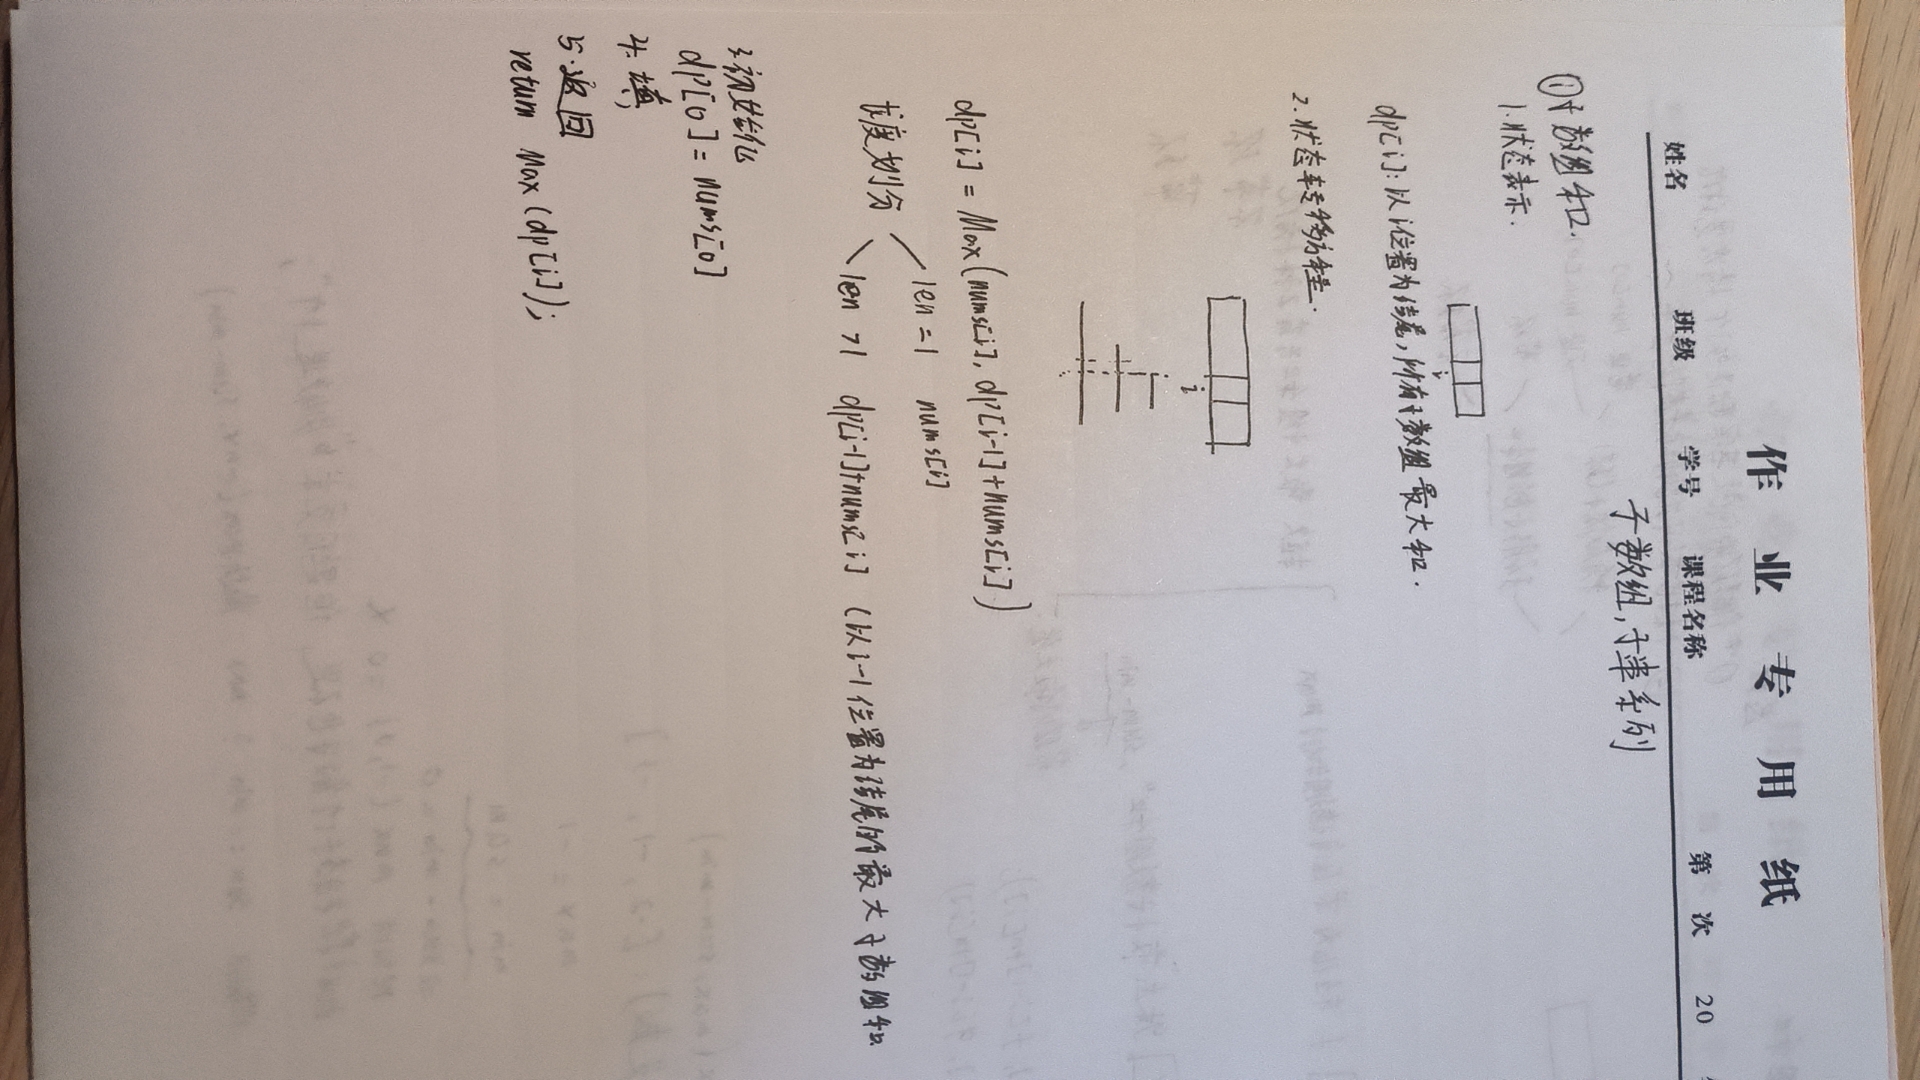 作业专用纸
姓名 班级 学号 课程名称 第 次 20
子数组,子串系列
①子数组和.
1.状态表示.
i
dp[i]:以i位置为结尾,所有子数组最大和.
2.状态转移方程.
i
dp[i] = Max(nums[i], dp[i-1]+nums[i])
长度划分 len = 1 nums[i]
len > 1 dp[i-1]+nums[i] (以i-1位置为结尾的最大子数组和
3.初始化
dp[0] = nums[0]
4.填
5.返回
return Max(dp[i]);